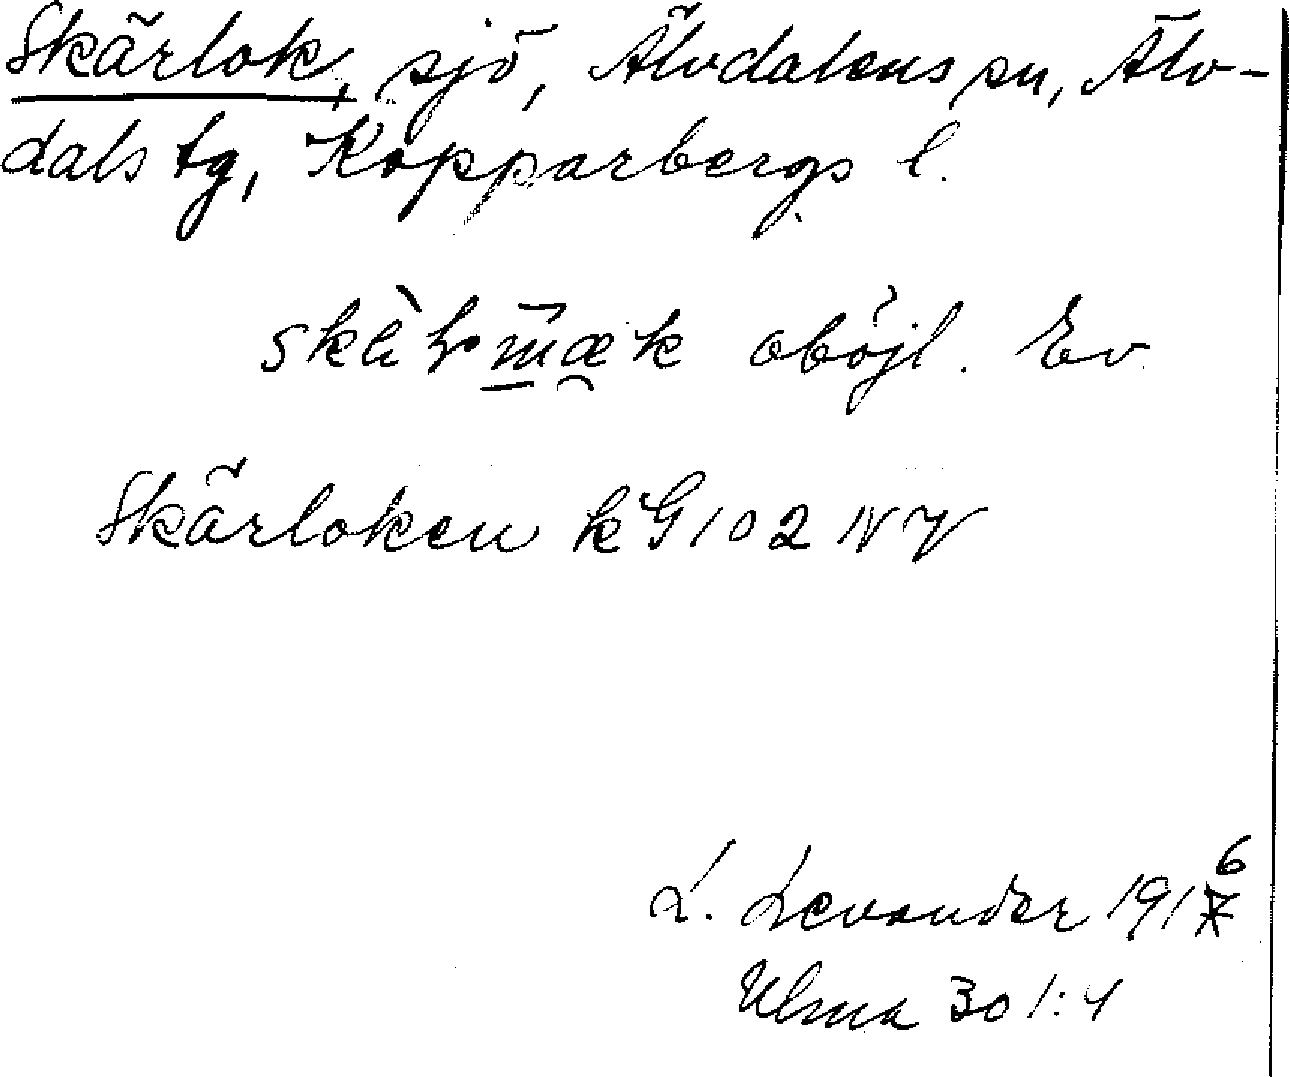 Skärlok, sjö, Älvdalens sn, Älv-
dals tg, Kopparbergs l.
oböjl. Ev.
Skärloken kG 102 NV
L. Levander 1916
Ulma 301:4